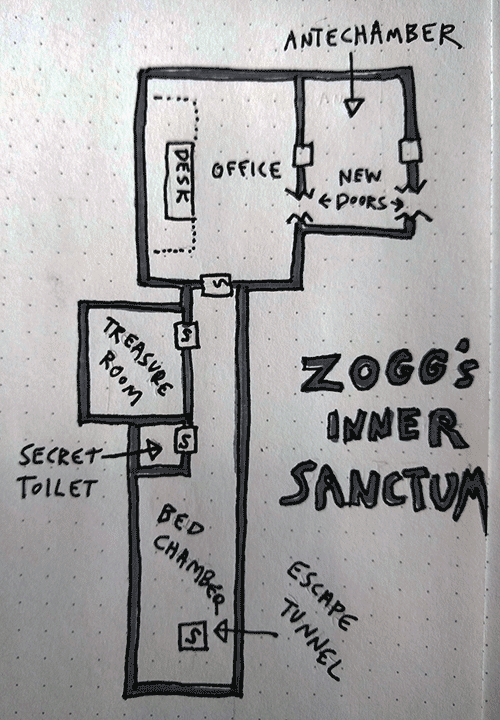 ANTECHAMBER
OFFICE
DESK
NEW
DOORS
S
TREASURE
ROOM
S
ZOGG'S
INNER
SANCTUM
SECRET
TOILET
S
BED
CHAMBER
ESCAPE
TUNNEL
S